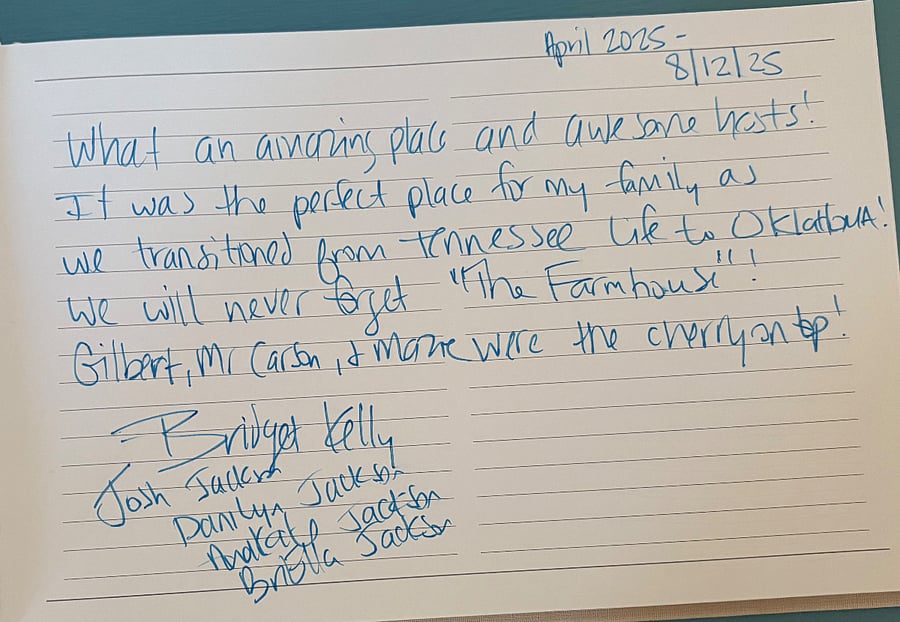 April 2025 -
8/12/25
What an amazing place and awesome hosts!
It was the perfect place for my family as
we transitioned from Tennessee life to Oklahoma!
We will never forget "The Farmhouse"!
Gilbert, Mr Carson, & Mazie were the cherry on top!
Bridget Kelly
Josh Jackson
Danilyn Jackson
Jackson
Briella Jackson